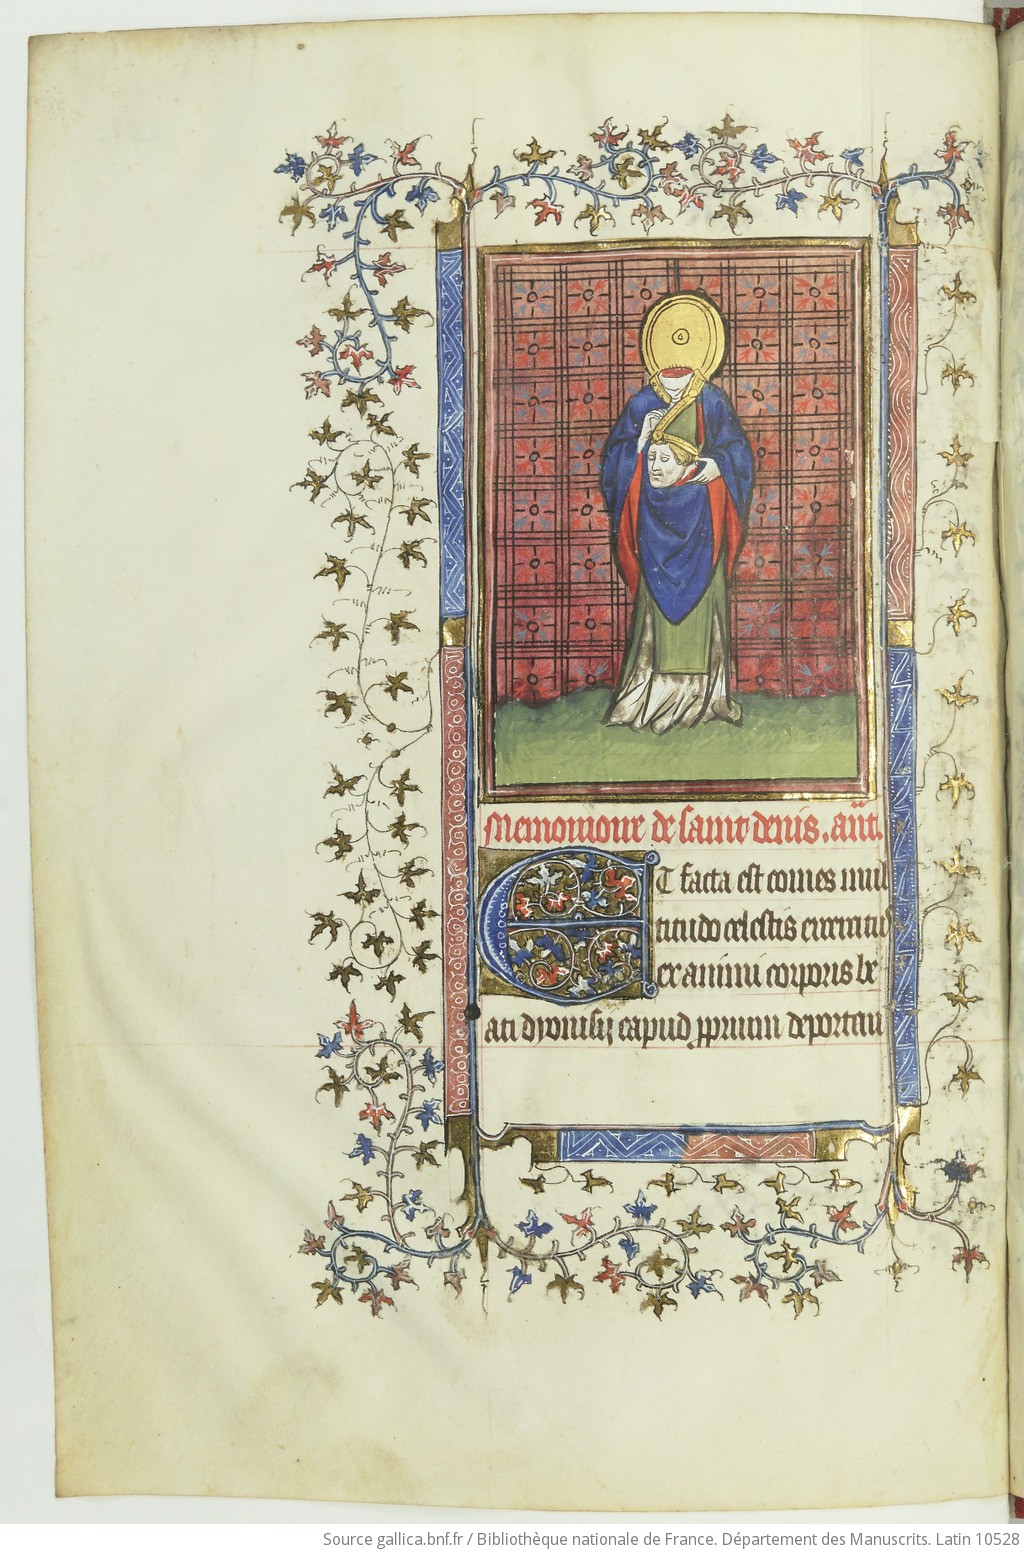 Memomoire de saint denis. añt.
ET facta est comes mul
titudo celestis exercitus
ex animi corporis be
ati dyonisij capud ꝓprium deportau
Source gallica.bnf.fr / Bibliothèque nationale de France. Département des Manuscrits. Latin 10528